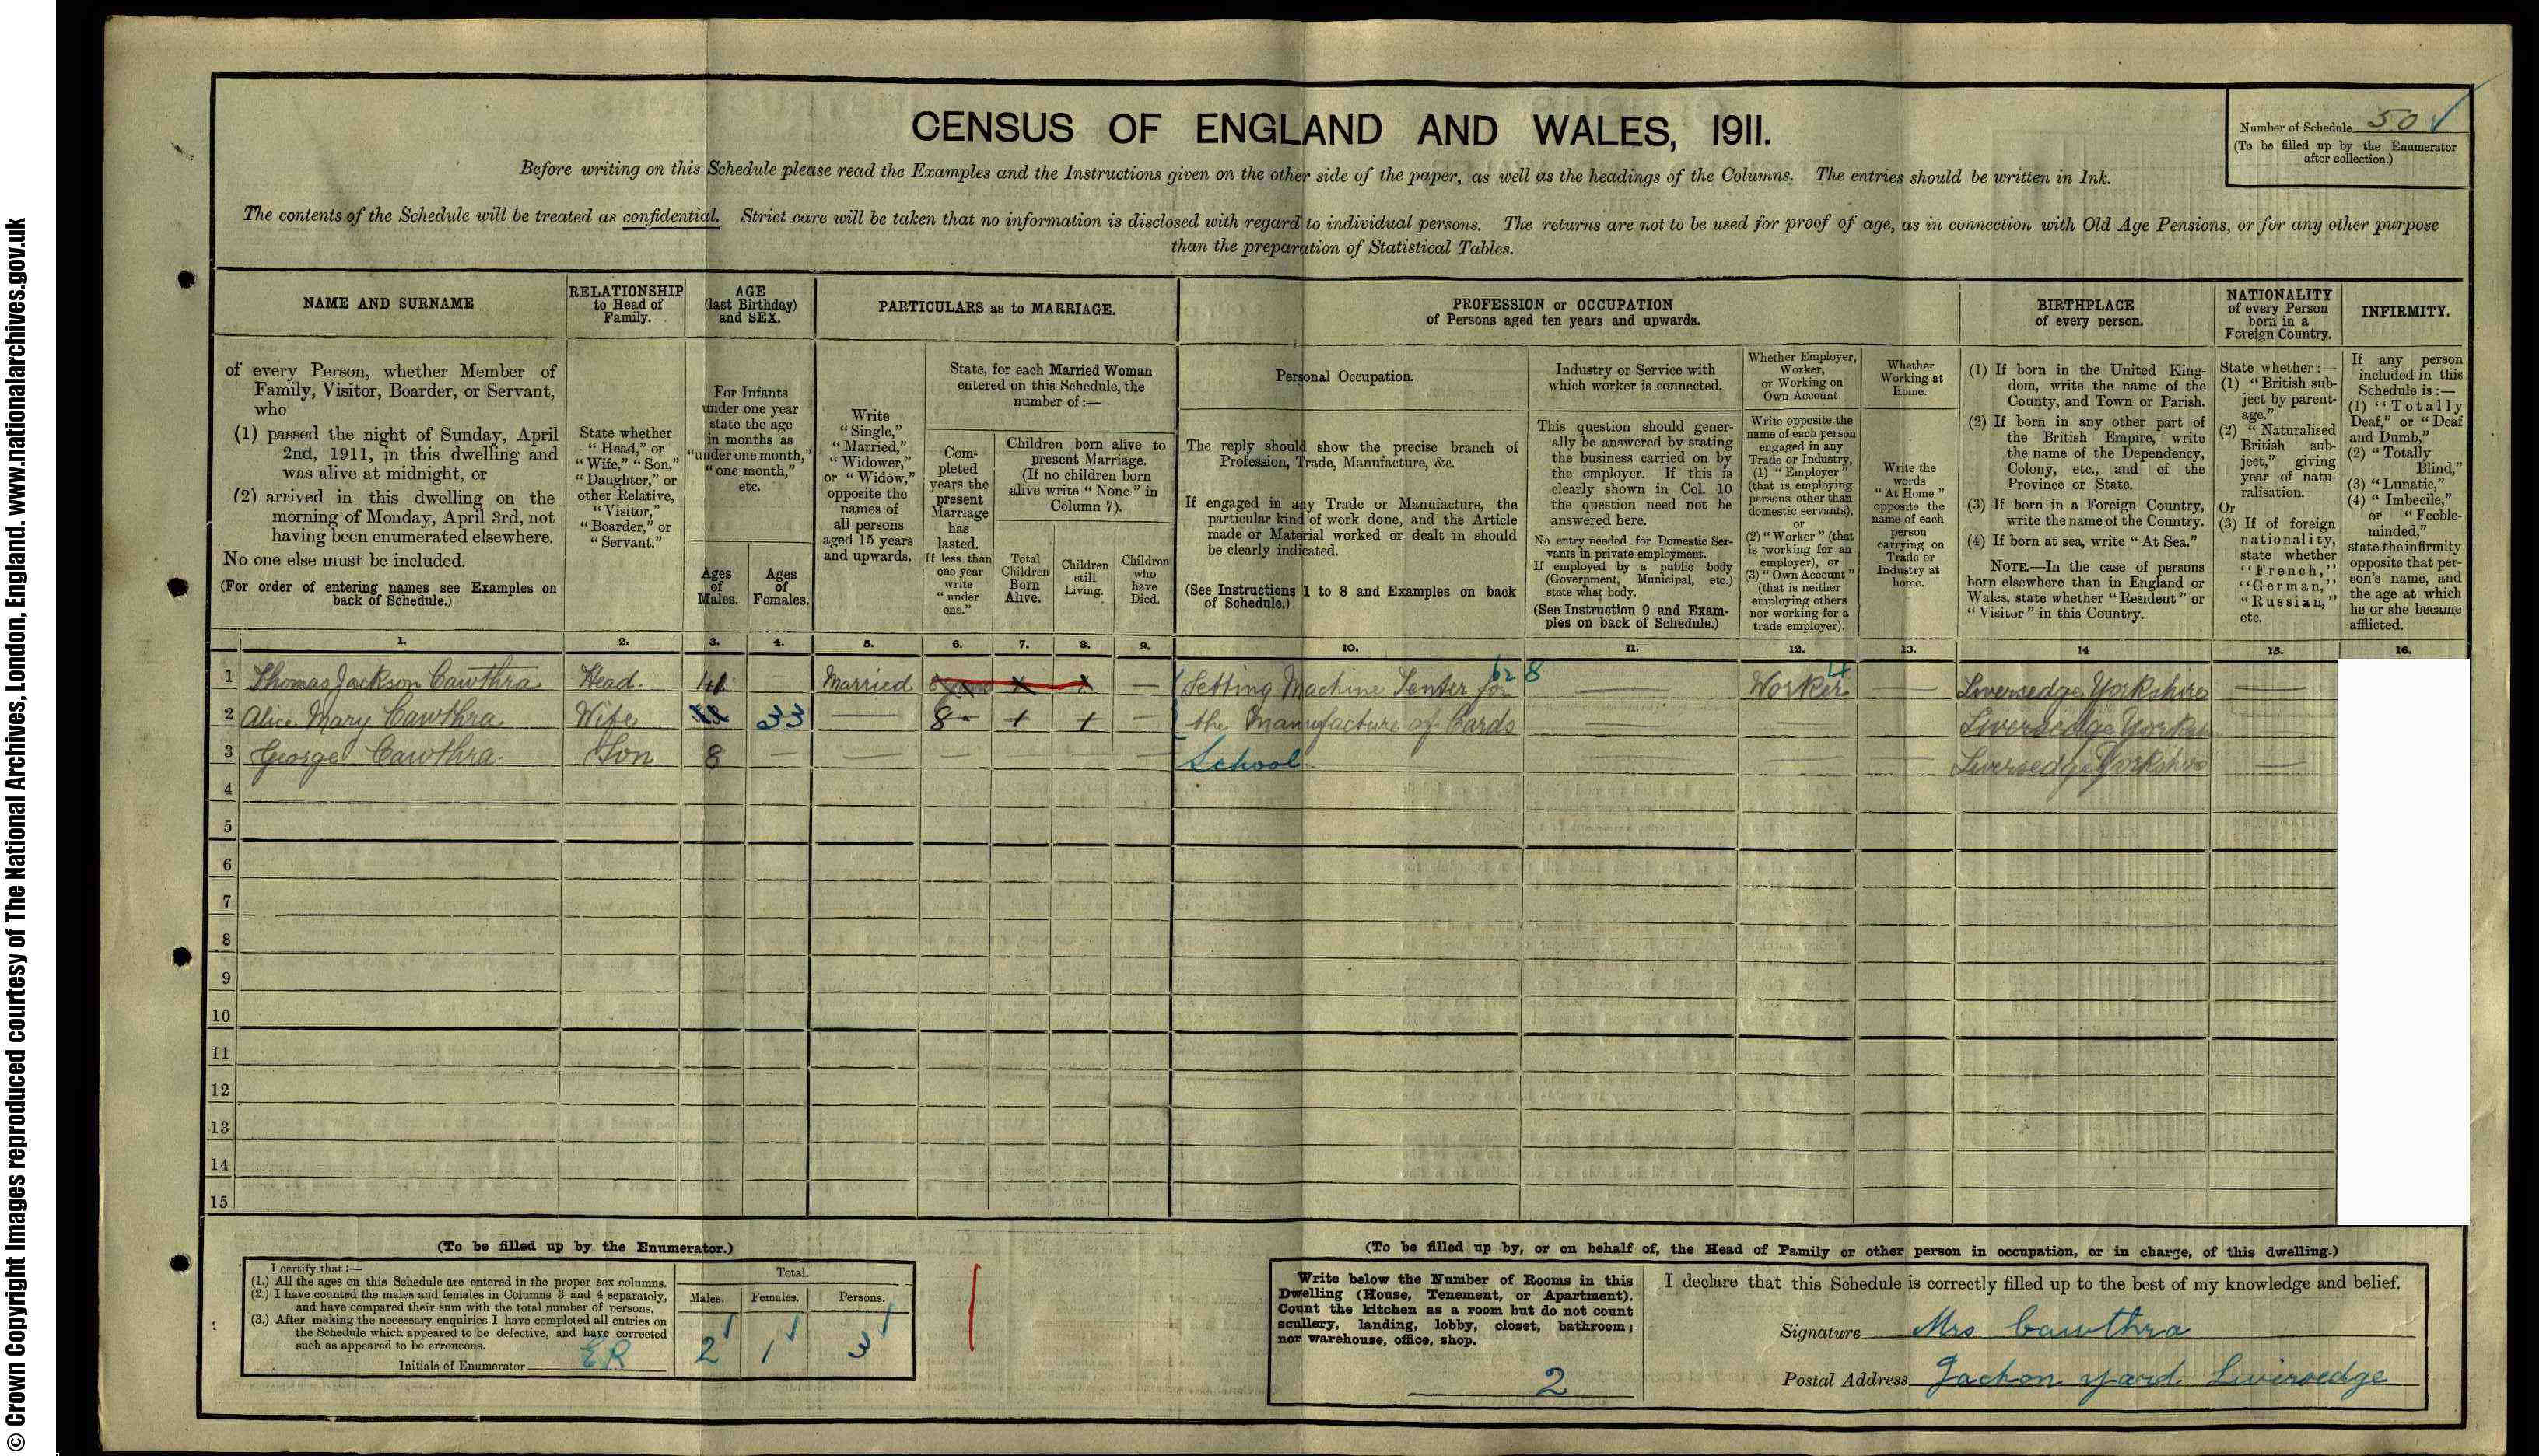 © Crown Copyright Images reproduced courtesy of The National Archives, London, England. www.nationalarchives.gov.uk
CENSUS OF ENGLAND AND WALES, 1911.
Number of Schedule 50
(To be filled up by the Enumerator
after collection.)
Before writing on this Schedule please read the Examples and the Instructions given on the other side of the paper, as well as the headings of the Columns. The entries should be written in Ink.
The contents of the Schedule will be treated as confidential. Strict care will be taken that no information is disclosed with regard to individual persons. The returns are not to be used for proof of age, as in connection with Old Age Pensions, or for any other purpose
than the preparation of Statistical Tables.
NAME AND SURNAME
of every Person, whether Member of
Family, Visitor, Boarder, or Servant,
who
(1) passed the night of Sunday, April
2nd, 1911, in this dwelling and
was alive at midnight, or
(2) arrived in this dwelling on the
morning of Monday, April 3rd, not
having been enumerated elsewhere.
No one else must be included.
(For order of entering names see Examples on
back of Schedule.)
RELATIONSHIP
to Head of
Family.
State whether
"Head," or
"Wife," "Son,"
"Daughter," or
other Relative,
"Visitor,"
"Boarder," or
"Servant."
AGE
(last Birthday)
and SEX.
For Infants
under one year
state the age
in months as
"under one month,"
"one month,"
etc.
Ages
of
Males.
Ages
of
Females.
PARTICULARS as to MARRIAGE.
Write
"Single,"
"Married,"
"Widower,"
or "Widow,"
opposite the
names of
all persons
aged 15 years
and upwards.
State, for each Married Woman
entered on this Schedule, the
number of :—
Com-
pleted
years the
present
Marriage
has
lasted.
If less than
one year
write
"under
one."
Children born alive to
present Marriage.
(If no children born
alive write "None" in
Column 7).
Total
Children
Born
Alive.
Children
still
Living.
Children
who
have
Died.
PROFESSION or OCCUPATION
of Persons aged ten years and upwards.
Personal Occupation.
The reply should show the precise branch of
Profession, Trade, Manufacture, &c.
If engaged in any Trade or Manufacture, the
particular kind of work done, and the Article
made or Material worked or dealt in should
be clearly indicated.
(See Instructions 1 to 8 and Examples on back
of Schedule.)
Industry or Service with
which worker is connected.
This question should gener-
ally be answered by stating
the business carried on by
the employer. If this is
clearly shown in Col. 10
the question need not be
answered here.
No entry needed for Domestic Ser-
vants in private employment.
If employed by a public body
(Government, Municipal, etc.)
state what body.
(See Instruction 9 and Exam-
ples on back of Schedule.)
Whether Employer,
Worker,
or Working on
Own Account.
Write opposite the
name of each person
engaged in any
Trade or Industry,
(1) "Employer"
(that is employing
persons other than
domestic servants),
or
(2) "Worker" (that
is working for an
employer), or
(3) "Own Account"
(that is neither
employing others
nor working for a
trade employer).
Whether
Working at
Home.
Write the
words
"At Home"
opposite the
name of each
person
carrying on
Trade or
Industry at
home.
BIRTHPLACE
of every person.
(1) If born in the United King-
dom, write the name of the
County, and Town or Parish.
(2) If born in any other part of
the British Empire, write
the name of the Dependency,
Colony, etc., and of the
Province or State.
(3) If born in a Foreign Country,
write the name of the Country.
(4) If born at sea, write "At Sea."
NOTE.—In the case of persons
born elsewhere than in England or
Wales, state whether "Resident" or
"Visitor" in this Country.
NATIONALITY
of every Person
born in a
Foreign Country.
State whether :—
(1) "British sub-
ject by parent-
age."
(2) "Naturalised
British sub-
ject," giving
year of natu-
ralisation.
Or
(3) If of foreign
nationality,
state whether
"French,"
"German,"
"Russian,"
etc.
INFIRMITY.
If any person
included in this
Schedule is :—
(1) "Totally
Deaf," or "Deaf
and Dumb,"
(2) "Totally
Blind,"
(3) "Lunatic,"
(4) "Imbecile,"
or "Feeble-
minded,"
state the infirmity
opposite that per-
son's name, and
the age at which
he or she became
afflicted.
1. 2. 3. 4. 5. 6. 7. 8. 9. 10. 11. 12. 13. 14 15. 16.
1 Thomas Jackson Cawthra Head. 41 Married x x — Setting Machine Tenter for 628 — Worker 4 — Liversedge Yorkshire —
2 Alice Mary Cawthra Wife 33 — 8 1 1 — the Manufacture of Cards — Liversedge
3 George Cawthra. Son 8 — — — — — School. Liversedge Yorkshire —
4
5
6
7
8
9
10
11
12
13
14
15
(To be filled up by the Enumerator.)
I certify that :—
(1.) All the ages on this Schedule are entered in the proper sex columns.
(2.) I have counted the males and females in Columns 3 and 4 separately,
and have compared their sum with the total number of persons.
(3.) After making the necessary enquiries I have completed all entries on
the Schedule which appeared to be defective, and have corrected
such as appeared to be erroneous.
Initials of Enumerator ER
Total.
Males. Females. Persons.
2 1 3
(To be filled up by, or on behalf of, the Head of Family or other person in occupation, or in charge, of this dwelling.)
Write below the Number of Rooms in this
Dwelling (House, Tenement, or Apartment).
Count the kitchen as a room but do not count
scullery, landing, lobby, closet, bathroom;
nor warehouse, office, shop.
2
I declare that this Schedule is correctly filled up to the best of my knowledge and belief.
Signature Mrs Cawthra
Postal Address Jackon yard Liversedge